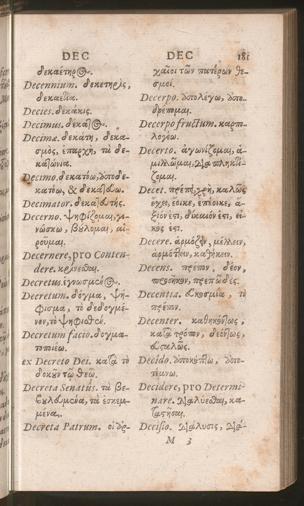 DEC
δεκαέτηρος.
Decennium. δεκετηρὶς,
δεκαετία.
Decies. δεκάκις.
Decimus. δέκατος.
Decimæ. δεκάτη, δεκα-
σμὸς, ἐπαρχὴ, τὰ δε-
Decimo. δεκατόω, ἀποδε-
κατόω,
Decimator. δεκατευτής.
Decerno. ψηφίζομαι, γι-
νώσκω, βούλομαι, αἱ-
ροῦμαι.
Decernere, pro Conten-
dere. κρίνεσθαι.
Decretus. ἐγνωσμένος.
Decretum. δόγμα, ψή-
φισμα, τὸ δεδογμέ-
νον, τὸ ψηφισθέν.
Decretum facio. δογμα-
τοποιέω.
ex Decreto Dei. κατὰ τὸ
δοκοῦν τῷ θεῷ.
Decreta Senatus. τὰ βε-
βουλευμένα, τὰ ἐσκεμ-
μένα.
Decreta Patrum. οἱ ἀρ-
DEC 181
χαῖοι τῶν πατέρων θε-
σμοί.
Decerpo. ἀπολέγω, ἀπο-
δρέπομαι.
Decerpo fructum. καρπο-
λογέω.
Decerto. ἀγωνίζομαι, ἁ-
μιλλῶμαι, διαπληκτί-
ζομαι.
Decet. πρέπει, χρὴ, καλῶς
ἔχει, ἔοικε, ἐπέοικε, ἄ-
ξιόν ἐστι, δίκαιόν ἐστι, εἰ-
κός ἐστι.
Decere. ἁρμόζειν, μέλλειν,
ἁρμόττειν, καθήκειν.
Decens. πρέπον, δέον,
προσῆκον, πρεπώδες.
Decentia. εὐκοσμία, τὸ
πρέπον.
Decenter. καθηκόντως,
κατὰ τρόπον, δεόντως,
εὐσταλῶς.
Decido. ἀποκόπτω, ἀπο-
τέμνω.
Decidere, pro Determi-
nare. διαλύεσθαι, κα-
Decisio. διάλυσις, δια-
M 3